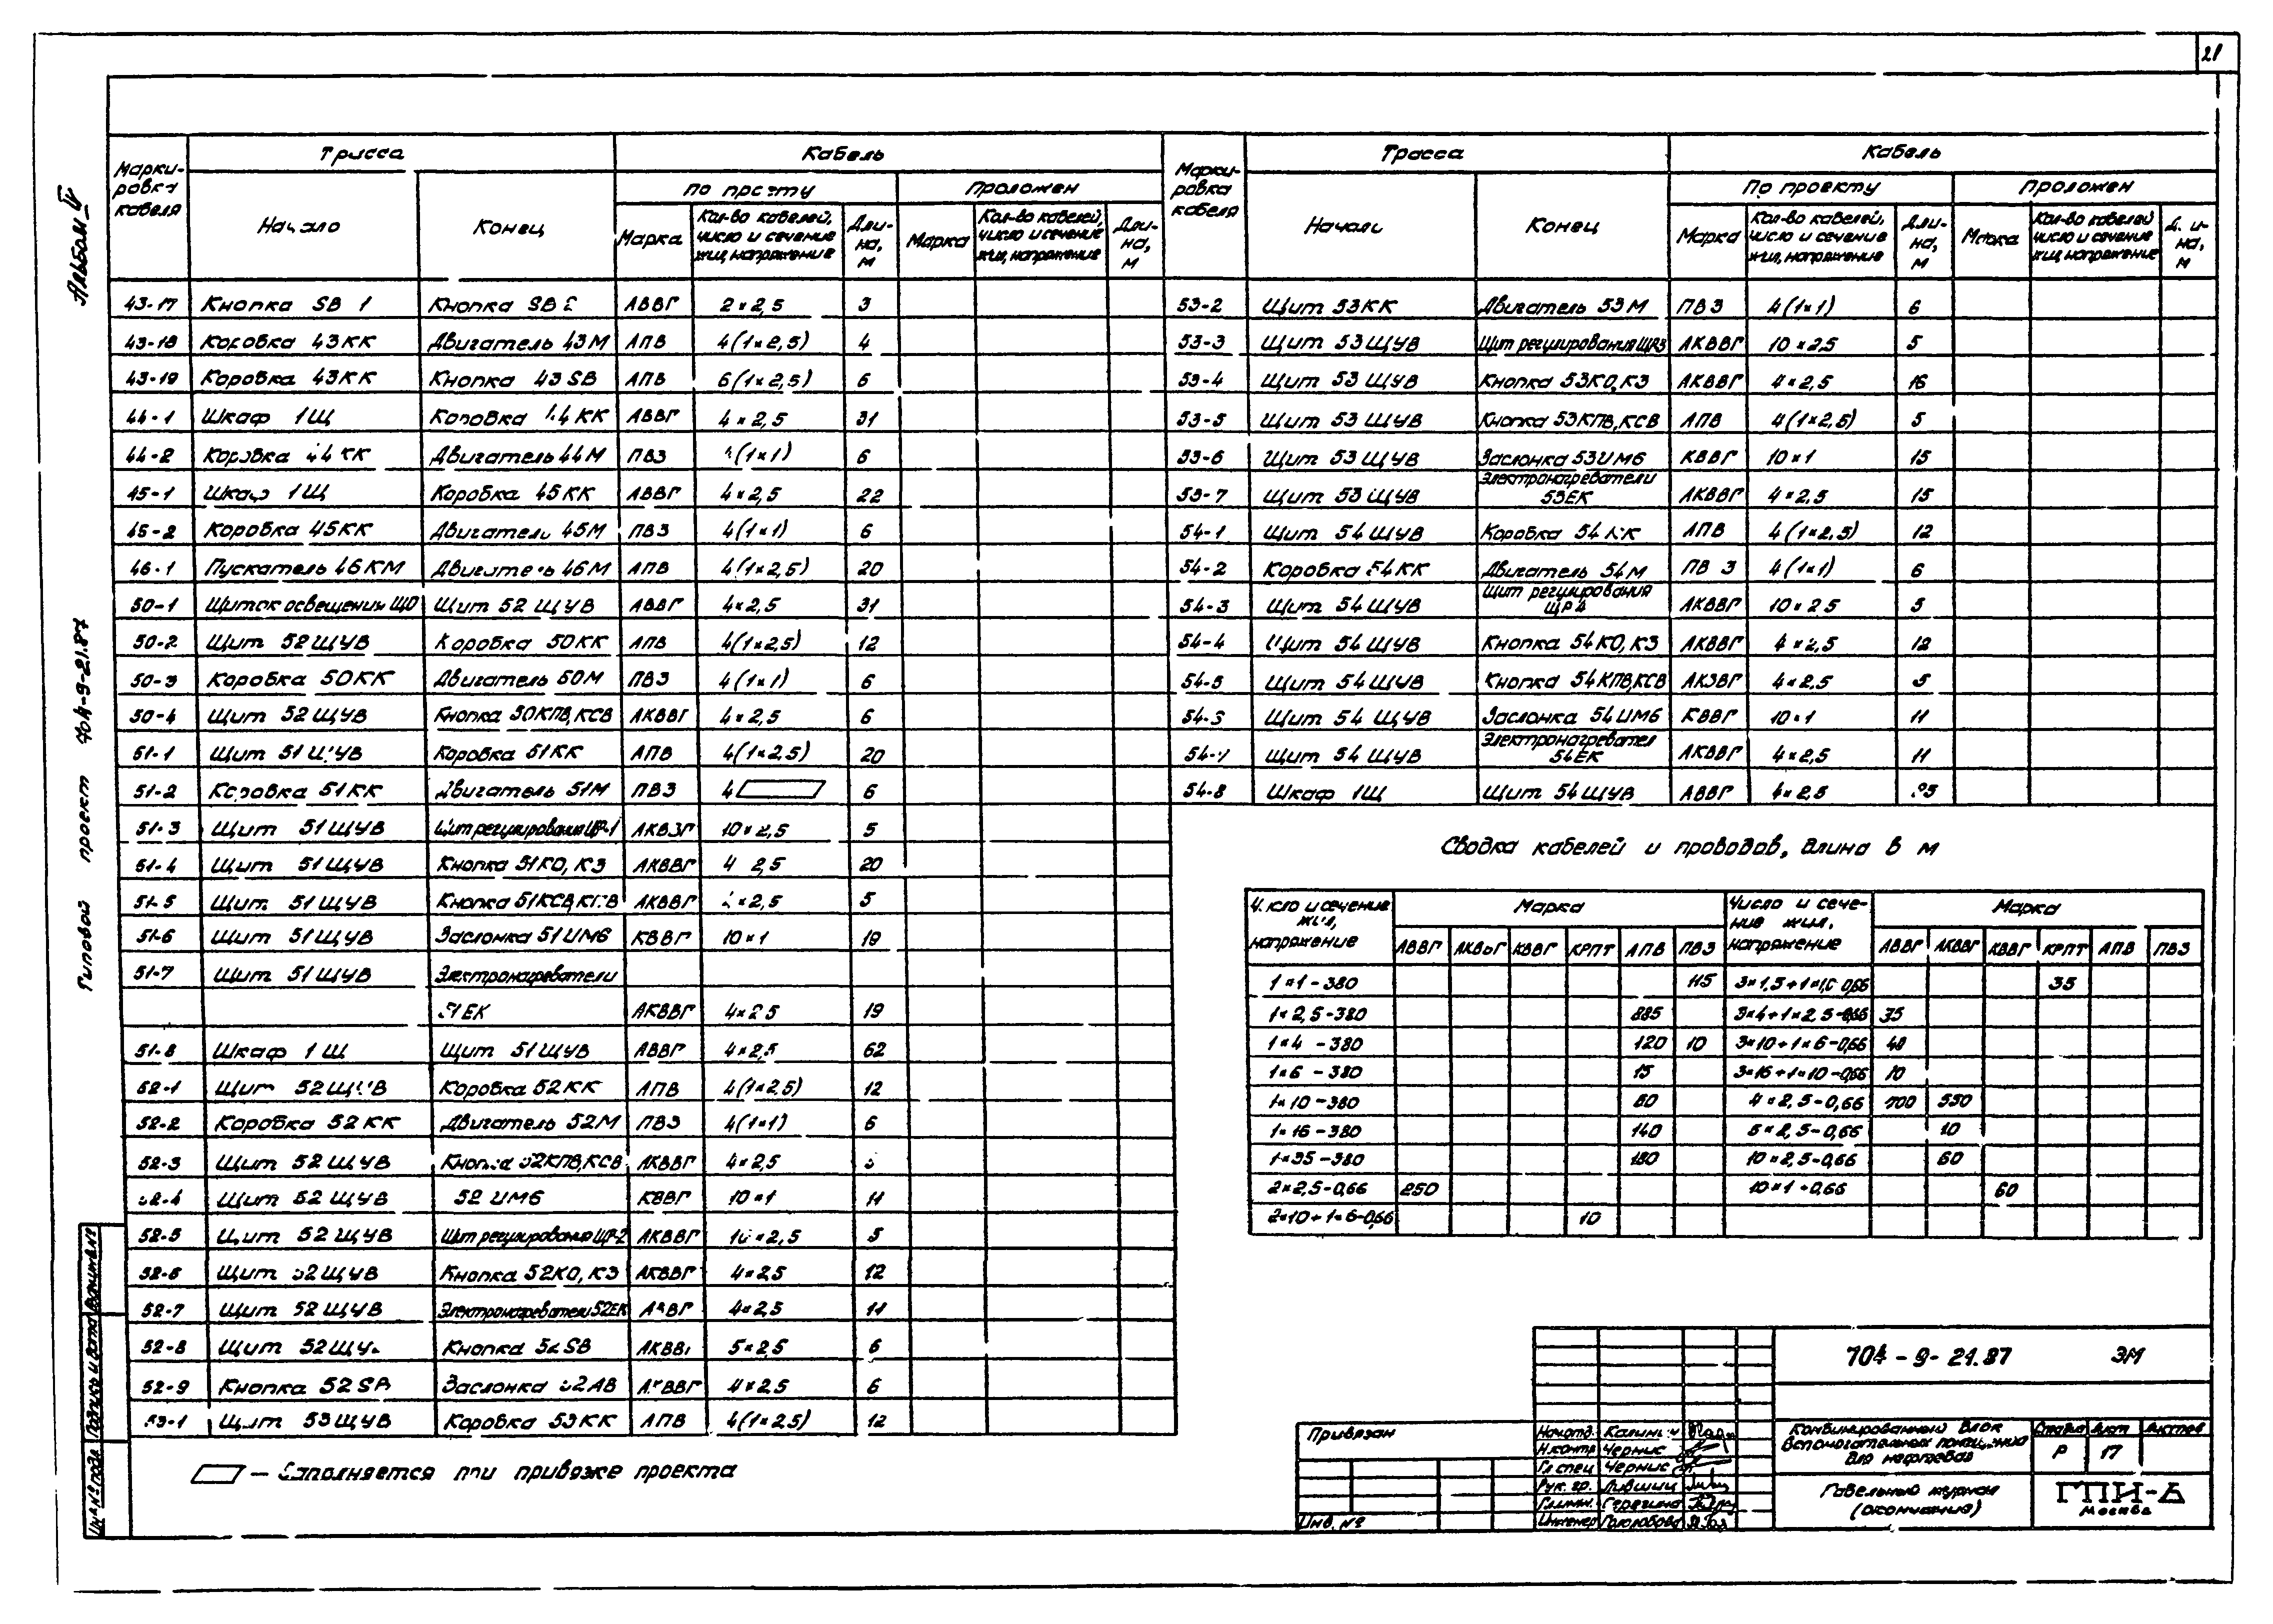 21
Альбом IV
Типовой проект 704-9-21.87
Марки-ровка кабеля | Трасса | Кабель
по проекту | Проложен
Начало | Конец | Марка | Кол-во кабелей, число и сечение жил, напряжение | Дли-на, м | Марка | Кол-во кабелей, число и сечение жил, напряжение | Дли-на, м
43-17 Кнопка SB 1 Кнопка SB АВВГ 2×2,5 3
43-18 Коробка 43КК Двигатель 43М АПВ 4(1×2,5) 4
43-19 Коробка 43КК Кнопка 43SB АПВ 6(1×2,5) 6
44-1 Шкаф 1Щ Коробка 44КК АВВГ 4×2,5 31
44-2 Коробка 44КК Двигатель 44М ПВ3 (1×1) 6
45-1 Шкаф 1Щ Коробка 45КК АВВГ 4×2,5 22
45-2 Коробка 45КК Двигатель 45М ПВ3 4(1×1) 6
46-1 Пускатель 46КМ Двигатель 46М АПВ 4(1×2,5) 20
50-1 Щиток освещения ЩО Щит 52ЩУВ АВВГ 4×2,5 31
50-2 Щит 52ЩУВ Коробка 50КК АПВ 4(1×2,5) 12
50-3 Коробка 50КК Двигатель 50М ПВ3 4(1×1) 6
50-4 Щит 52ЩУВ Кнопка 50КПВ,КСВ АКВВГ 4×2,5 6
51-1 Щит 51ЩУВ Коробка 51КК АПВ 4(1×2,5) 20
51-2 Коробка 51КК Двигатель 51М ПВ3 4 6
51-3 Щит 51ЩУВ Щит регулирования ЩР-1 АКВВГ 10×2,5 5
51-4 Щит 51ЩУВ Кнопка 51КО,КЗ АКВВГ 4 2,5 20
51-5 Щит 51ЩУВ Кнопка 51КСВ,КПВ АКВВГ ×2,5 5
51-6 Щит 51ЩУВ Заслонка 51ИМ6 КВВГ 10×1 19
51-7 Щит 51ЩУВ Электронагреватели
51ЕК АКВВГ 4×2,5 19
51-8 Шкаф 1Щ Щит 51ЩУВ АВВГ 4×2,5 62
52-1 Щит 52ЩУВ Коробка 52КК АПВ 4(1×2,5) 12
52-2 Коробка 52КК Двигатель 52М ПВ3 4(1×1) 6
52-3 Щит 52ЩУВ Кнопка 52КПВ,КСВ АКВВГ 4×2,5
52-4 Щит 52ЩУВ 52ИМ6 КВВГ 10×1 11
52-5 Щит 52ЩУВ Щит регулирования ЩР-2 АКВВГ 10×2,5 5
52-6 Щит 52ЩУВ Кнопка 52КО,КЗ АКВВГ 4×2,5 12
52-7 Щит 52ЩУВ Электронагреватели 52ЕК 4×2,5 11
52-8 Щит 52ЩУВ Кнопка 52SB АКВВГ 5×2,5 6
52-9 Кнопка 52SB Заслонка 52АВ АКВВГ 4×2,5 6
53-1 Щит 53ЩУВ Коробка 53КК АПВ 4(1×2,5) 12
— Заполняется при привязке проекта
Марки-ровка кабеля | Трасса | Кабель
По проекту | Проложен
Начало | Конец | Марка | Кол-во кабелей, число и сечение жил, напряжение | Дли-на, м | Марка | Кол-во кабелей число и сечение жил, напряжение | Дли-на, м
53-2 Щит 53КК Двигатель 53М ПВ3 4(1×1) 6
53-3 Щит 53ЩУВ Щит регулирования ЩР3 АКВВГ 10×2,5 5
53-4 Щит 53ЩУВ Кнопка 53КО,КЗ АКВВГ 4×2,5 16
53-5 Щит 53ЩУВ Кнопка 53КПВ,КСВ АПВ 4(1×2,5) 5
53-6 Щит 53ЩУВ Заслонка 53ИМ6 КВВГ 10×1 15
53-7 Щит 53ЩУВ Электронагреватели 53ЕК АКВВГ 4×2,5 15
54-1 Щит 54ЩУВ Коробка 54КК АПВ 4(1×2,5) 12
54-2 Коробка 54КК Двигатель 54М ПВ 3 4(1×1) 6
54-3 Щит 54ЩУВ Щит регулирования ЩР4 АКВВГ 10×2,5 5
54-4 Щит 54ЩУВ Кнопка 54КО,КЗ АКВВГ 4×2,5 12
54-5 Щит 54ЩУВ Кнопка 54КПВ,КСВ АКВВГ 4×2,5 5
Щит 54ЩУВ Заслонка 54ИМ6 КВВГ 10×1 11
54-7 Щит 54ЩУВ Электронагревател 54ЕК АКВВГ 4×2,5 11
54-8 Шкаф 1Щ Щит 54ЩУВ АВВГ 4×2,5
Сводка кабелей и проводов, длина в м
Число и сечение жил, напряжение | Марка | Число и сече-ние жил, напряжение | Марка
АВВГ АКВВГ КВВГ КРПТ АПВ ПВ3 АВВГ АКВВГ КВВГ КРПТ АПВ ПВ3
1×1-380 115 3×1,5+1×1,0-0,66 35
1×2,5-380 885 3×4+1×2,5-0,66 35
1×4-380 120 10 3×10+1×6-0,66 40
1×6-380 15 3×16+1×10-0,66 10
1×10-380 60 4×2,5-0,66 700 550
1×16-380 140 5×2,5-0,66 10
1×35-380 180 10×2,5-0,66 60
2×2,5-0,66 250 10×1-0,66 60
2×10+1×6-0,66 10
704-9-21.87 ЭМ
Привязан
Инв. №
Нач.отд. Калинин
Н.контр Чернис
Гл.спец Чернис
Рук. гр. Лившиц
Инженер Гололобова
Комбинированный блок вспомогательных помещений для нефтебаз
Стадия Лист Листов
Р 17
Кабельный журнал (окончание)
ГПИ-6
Москва
Инв № подл. Подпись и дата